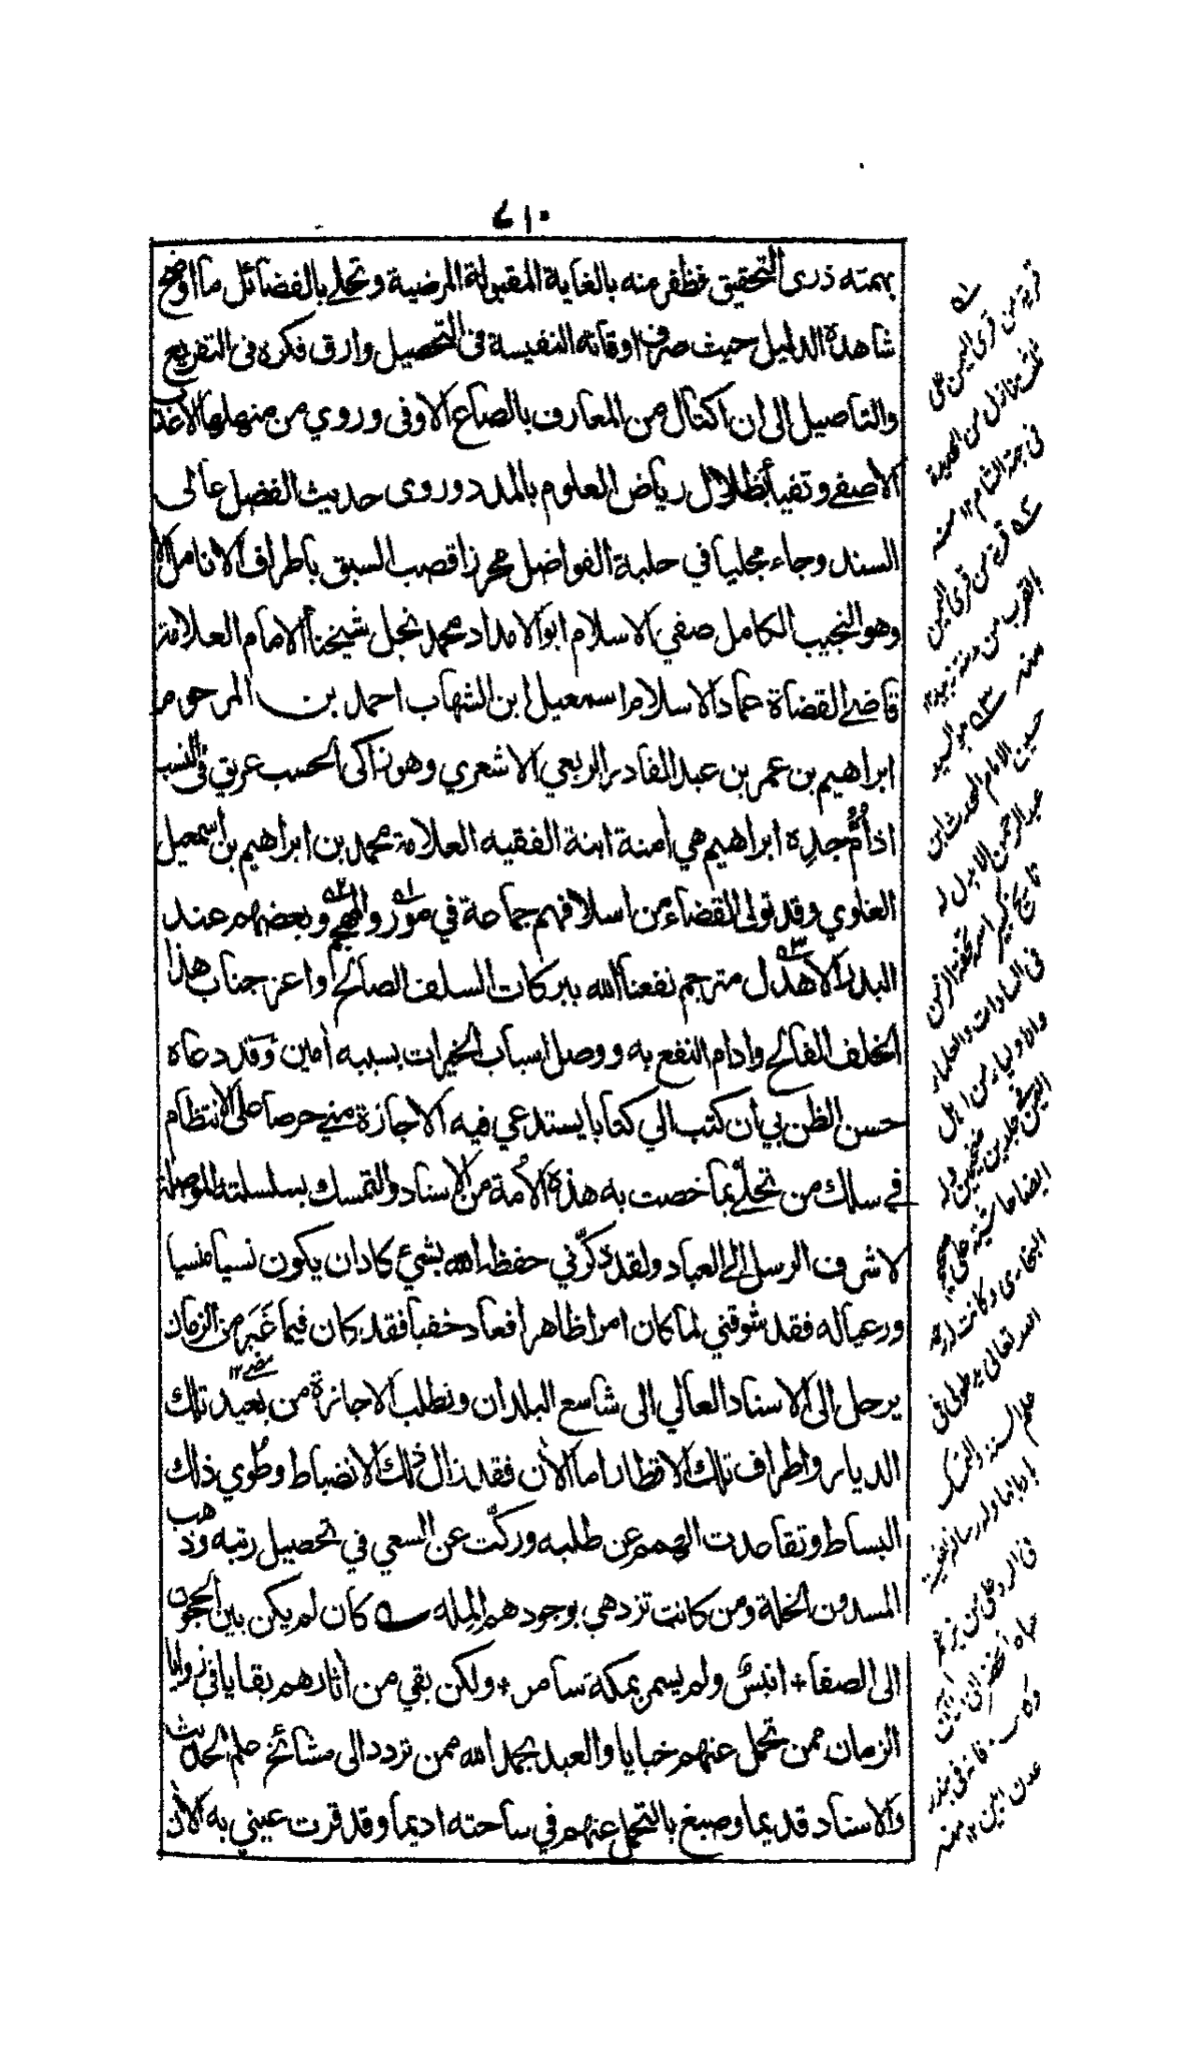 ٢١٠
بهمته ذرى التحقيق فظفر منه بالغاية المقبولة المرضية وتحلى بالفضائل ما اوضح
شاهده الدليل حيث صرف اوقاته النفيسة فى التحصيل وارق فكره فى التفريع
والتاصيل الى ان اكتال من المعارف بالصاع الاوفى وروي من منهلها الاعذب
الاصفى وتفيأ بظلال رياض العلوم بالمدد وروى حديث الفضل عالى
السند وجاء مجليا في حلبة الفواضل محرزا قصب السبق باطراف الانامل الا
وهو النجيب الكامل صفي الاسلام ابو الامداد محمد نجل شيخنا الامام العلامة
قاضى القضاة عماد الاسلام اسمعيل ابن الشهاب احمد بن المرحوم
ابراهيم بن عمر بن عبد القادر الربعي الاشعري وهو زاكى الحسب عريق فى النسب
اذ أُمُّ جده ابراهيم هي امنة ابنة الفقيه العلامة محمد بن ابراهيم بن اسمعيل
العلوي وقد تولى القضاء من اسلافهم جماعة في مور والمهجم وبعضهم عند
البدر الاهدل مترجم نفعنا الله ببركات السلف الصالح واعز جناب هذا
الخلف الفالح وادام النفع به ووصل اسباب الخيرات بسببه امين وقد دعاه
حسن الظن بي ان كتب الي كتابا يستدعي فيه الاجازة مني حرصا على الانتظام
في سلك من تحلى بما خصت به هذه الأمة من الاسناد والتمسك بسلسلته الموصلة
لاشرف الرسل الى العباد ولقد ذكّرني حفظه الله بشئ كاد ان يكون نسيا منسيا
ورعيا له فقد شوقني لما كان امرا ظاهرا فعاد خفيا فقد كان فيما غَبَر من الزمان
يرحل الى الاسناد العالي الى شاسع البلدان وتطلب الاجازة من بعيد تلك
الديار واطراف تلك الاقطار اما الأن فقد زال ذلك الانضباط وطُوي ذلك
البساط وتقاعدت الهمم عن طلبه وركّت عن السعي في تحصيل رتبه وذهب
المسدون الخلة ومن كانت تزدهي بوجودهم الملة كان لم يكن بين الحجون
الى الصفا + انيسٌ ولم يسمر بمكة سامر + ولكن بقي من اثارهم بقايا في زوايا
الزمان ممن تحمل عنهم خبايا والعبد بحمد الله ممن تردد الى مشائخ علم الحديث
والاسناد قديما وصبغ بالتحمل عنهم في ساحته اديما وقد قرت عيني به الأن
١ قرية من قرى اليمن على
ثلث منازل من الحديدة
فى جهة الشام ١٢ منه
٢ قرية من قرى اليمن
بالقرب من مدينة زبيد ١٢
منه ٣ هو السيد
حسين الامام المحدث ابن
عبد الرحمن الاهدل له
تاريخ كبير اسمه تحفة الزمن
فى السادات والعلماء
والاولياء من اهل
اليمن فى جلدين ضخمين وله
ايضا حاشية على صحيح
البخارى وكانت له رحمه
الله تعالى يد طولى فى
علم السنة والتمسك